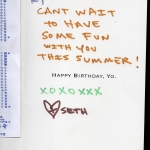 CANT WAIT
TO HAVE
SOME FUN
WITH YOU
THIS SUMMER!
HAPPY BIRTHDAY, YO.
XOXOXXX
SETH